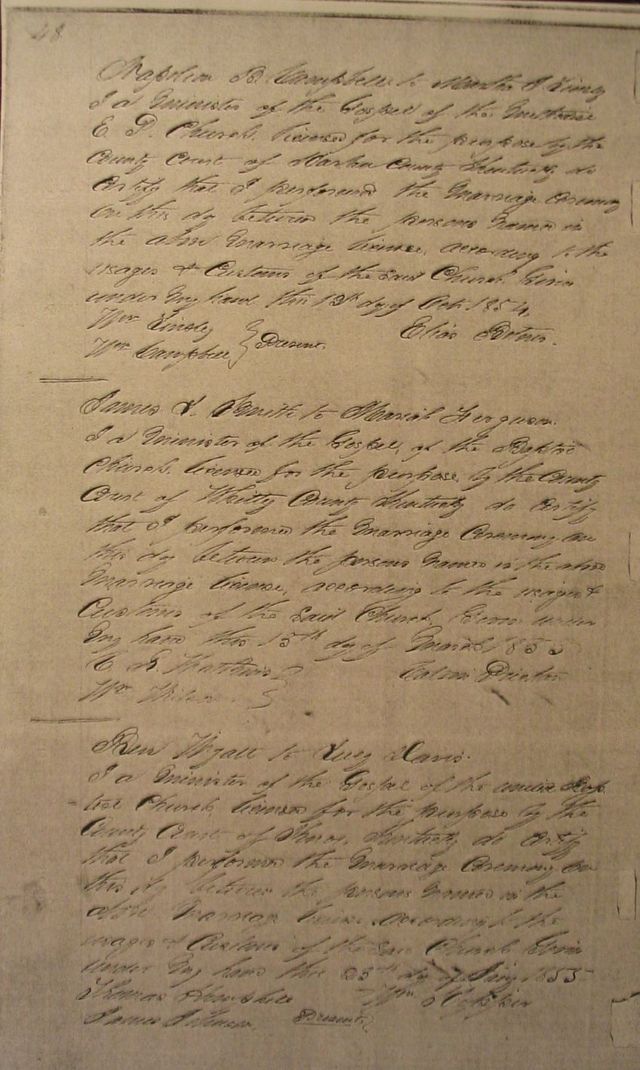 48
Napoleon B Campbell to Martha A
I a Minister of the Gospel of the
E P. Church, licensed for the purpose by the
County Court of County Kentucky do
certify that I performed the Marriage Ceremony
on this day between the persons Named in
the above Marriage license, according to the
usages & Customs of the said Church. Given
under My hand this day of Oct. 1854
Wm
Wm Campbell } Present. Elias
James Smith to Mariah Ferguson.
I a Minister of the Gospel, of the Baptist
Church licensed for the purpose, by the County
Court of Whitley County Kentucky do certify
that I performed the Marriage Ceremony on
this day between the persons Named in the above
Marriage license, according to the usages &
Customs of the said Church, Given under
My hand this 15th day of March 1855
Wm
to Lucy Davis.
I a Minister of the Gospel of the Bap
tist Church licensed for the purpose by the
County Court of Kentucky do certify
that I performed the Marriage Ceremony on
this day between the persons Named in the
above Marriage license according to the
usages & Customs of the said Church Given
under My hand this day of 1855
Thomas Wm
James Present